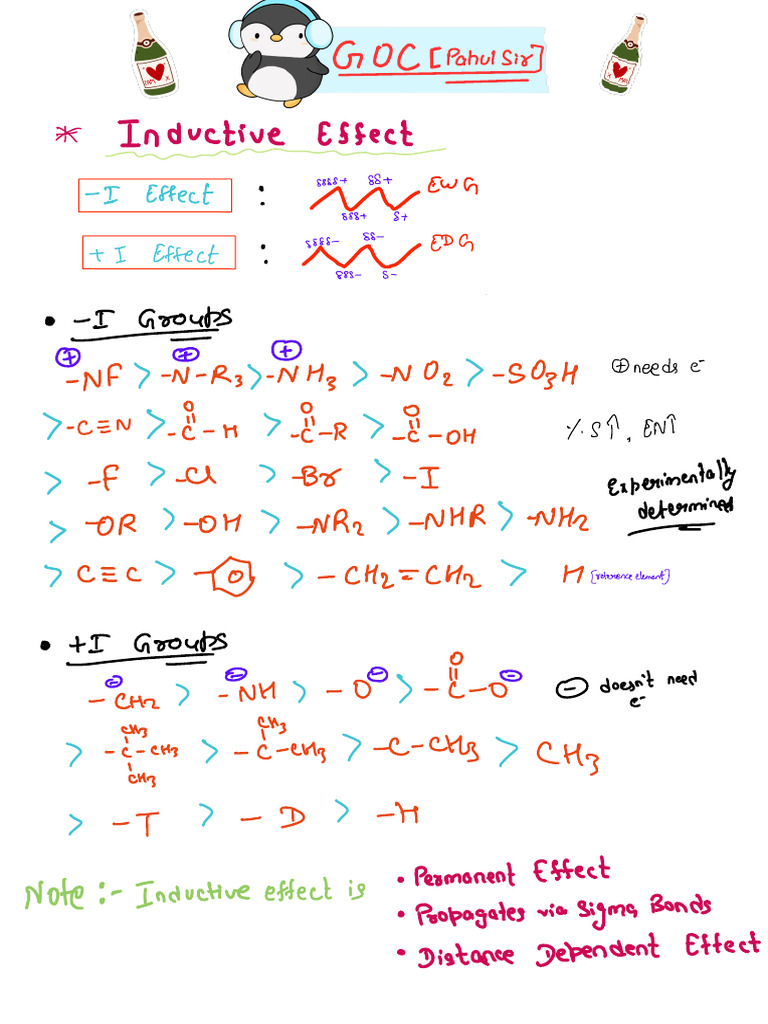 GOC [Pahul Sir]
* Inductive Effect
-I Effect : δδδδ+ δδδ+ δδ+ δ+ EWG
+I Effect : δδδδ- δδδ- δδ- δ- EDG
• -I Groups
-NF⊕ > -N⊕-R3 > -NH3⊕ > -NO2 > -SO3H ⊕ needs e-
> -C≡N > -C(=O)-H > -C(=O)-R > -C(=O)-OH %S↑, EN↑
> -F > -Cl > -Br > -I Experimentally determined
> -OR > -OH > -NR2 > -NHR > -NH2
> C≡C > -⌬ > -CH2=CH2 > H [reference element]
• +I Groups
-CH2⊖ > -NH⊖ > -O⊖ > -C(=O)-O⊖ ⊖ doesn't need e-
> -C(CH3)(CH3)-CH3 > -C(CH3)-CH3 > -C-CH3 > CH3
> -T > -D > -H
Note :- Inductive effect is
• Permanent Effect
• Propagates via Sigma Bonds
• Distance Dependent Effect